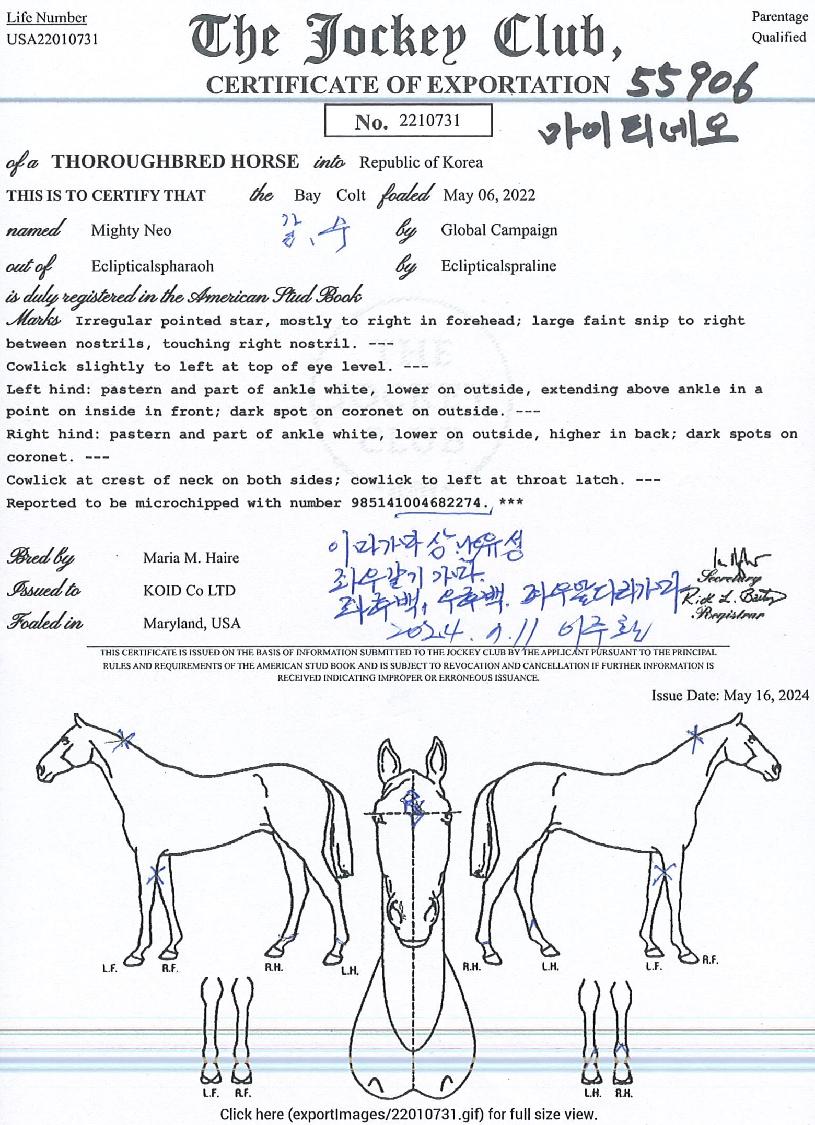 Life Number
USA22010731
The Jockey Club,
Parentage
Qualified
CERTIFICATE OF EXPORTATION 55906
No. 2210731
마이티네오
of a THOROUGHBRED HORSE into Republic of Korea
THIS IS TO CERTIFY THAT the Bay Colt foaled May 06, 2022
named Mighty Neo 갈, 수 by Global Campaign
out of Eclipticalspharaoh by Eclipticalspraline
is duly registered in the American Stud Book
Marks Irregular pointed star, mostly to right in forehead; large faint snip to right
between nostrils, touching right nostril. ---
Cowlick slightly to left at top of eye level. ---
Left hind: pastern and part of ankle white, lower on outside, extending above ankle in a
point on inside in front; dark spot on coronet on outside. ---
Right hind: pastern and part of ankle white, lower on outside, higher in back; dark spots on
coronet. ---
Cowlick at crest of neck on both sides; cowlick to left at throat latch. ---
Reported to be microchipped with number 985141004682274. ***
Bred by Maria M. Haire
이마가마상, 유성
좌우갈기 가마.
Issued to KOID Co LTD
좌후백, 우후백. 좌우앞다리가마
Secretary
Rick L. Bailey
Registrar
Foaled in Maryland, USA
2024. 9. 11
THIS CERTIFICATE IS ISSUED ON THE BASIS OF INFORMATION SUBMITTED TO THE JOCKEY CLUB BY THE APPLICANT PURSUANT TO THE PRINCIPAL
RULES AND REQUIREMENTS OF THE AMERICAN STUD BOOK AND IS SUBJECT TO REVOCATION AND CANCELLATION IF FURTHER INFORMATION IS
RECEIVED INDICATING IMPROPER OR ERRONEOUS ISSUANCE.
Issue Date: May 16, 2024
L.F. R.F. R.H. L.H. R.H. L.H. L.F. R.F.
L.F. R.F. L.H. R.H.
Click here (exportImages/22010731.gif) for full size view.